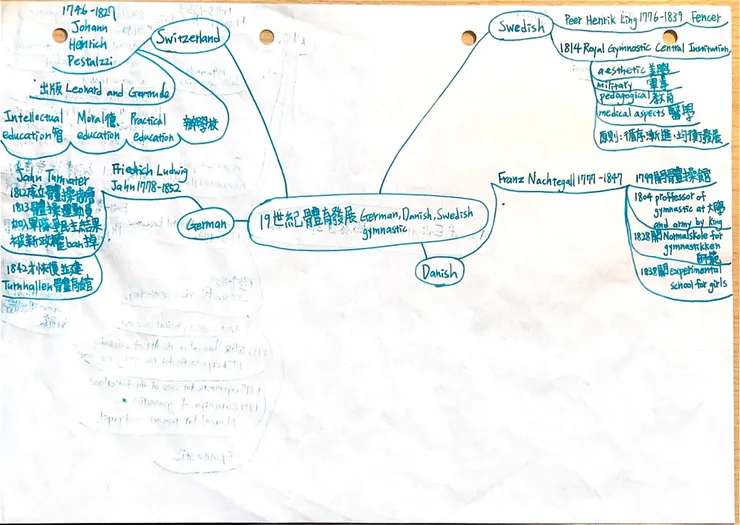 1746-1827
Johann
Heinrich
Pestalzzi
Switzerland
出版 Leonard and Gertrude
Intellectual Moral德 Practical 辦學校
education智 education education
Swedish
Peer Henrik Ling 1776-1839 Fencer
1814 Royal Gymnastic Central Institution
aesthetic 美學
military 軍事
pedagogical 教育
medical aspects 醫學
原則:循序漸進、均衡發展
Jahn Turnvater
1812成立體操協會
1813體操運動員
加入軍隊爭民主結果
被新政權ban掉
1842才恢復並建
Turnhallen 體育館
Friedrich Ludwig
Jahn 1778-1852
German
19世紀體育發展 German, Danish, Swedish
gymnastic
Danish
Franz Nachtegall 1777-1847
1799開體操館
1804 proffessor of
gymnastic at 大學
and army by king
1828開Normalskole for
gymnastikken
師範
1838開experimental
school for girls